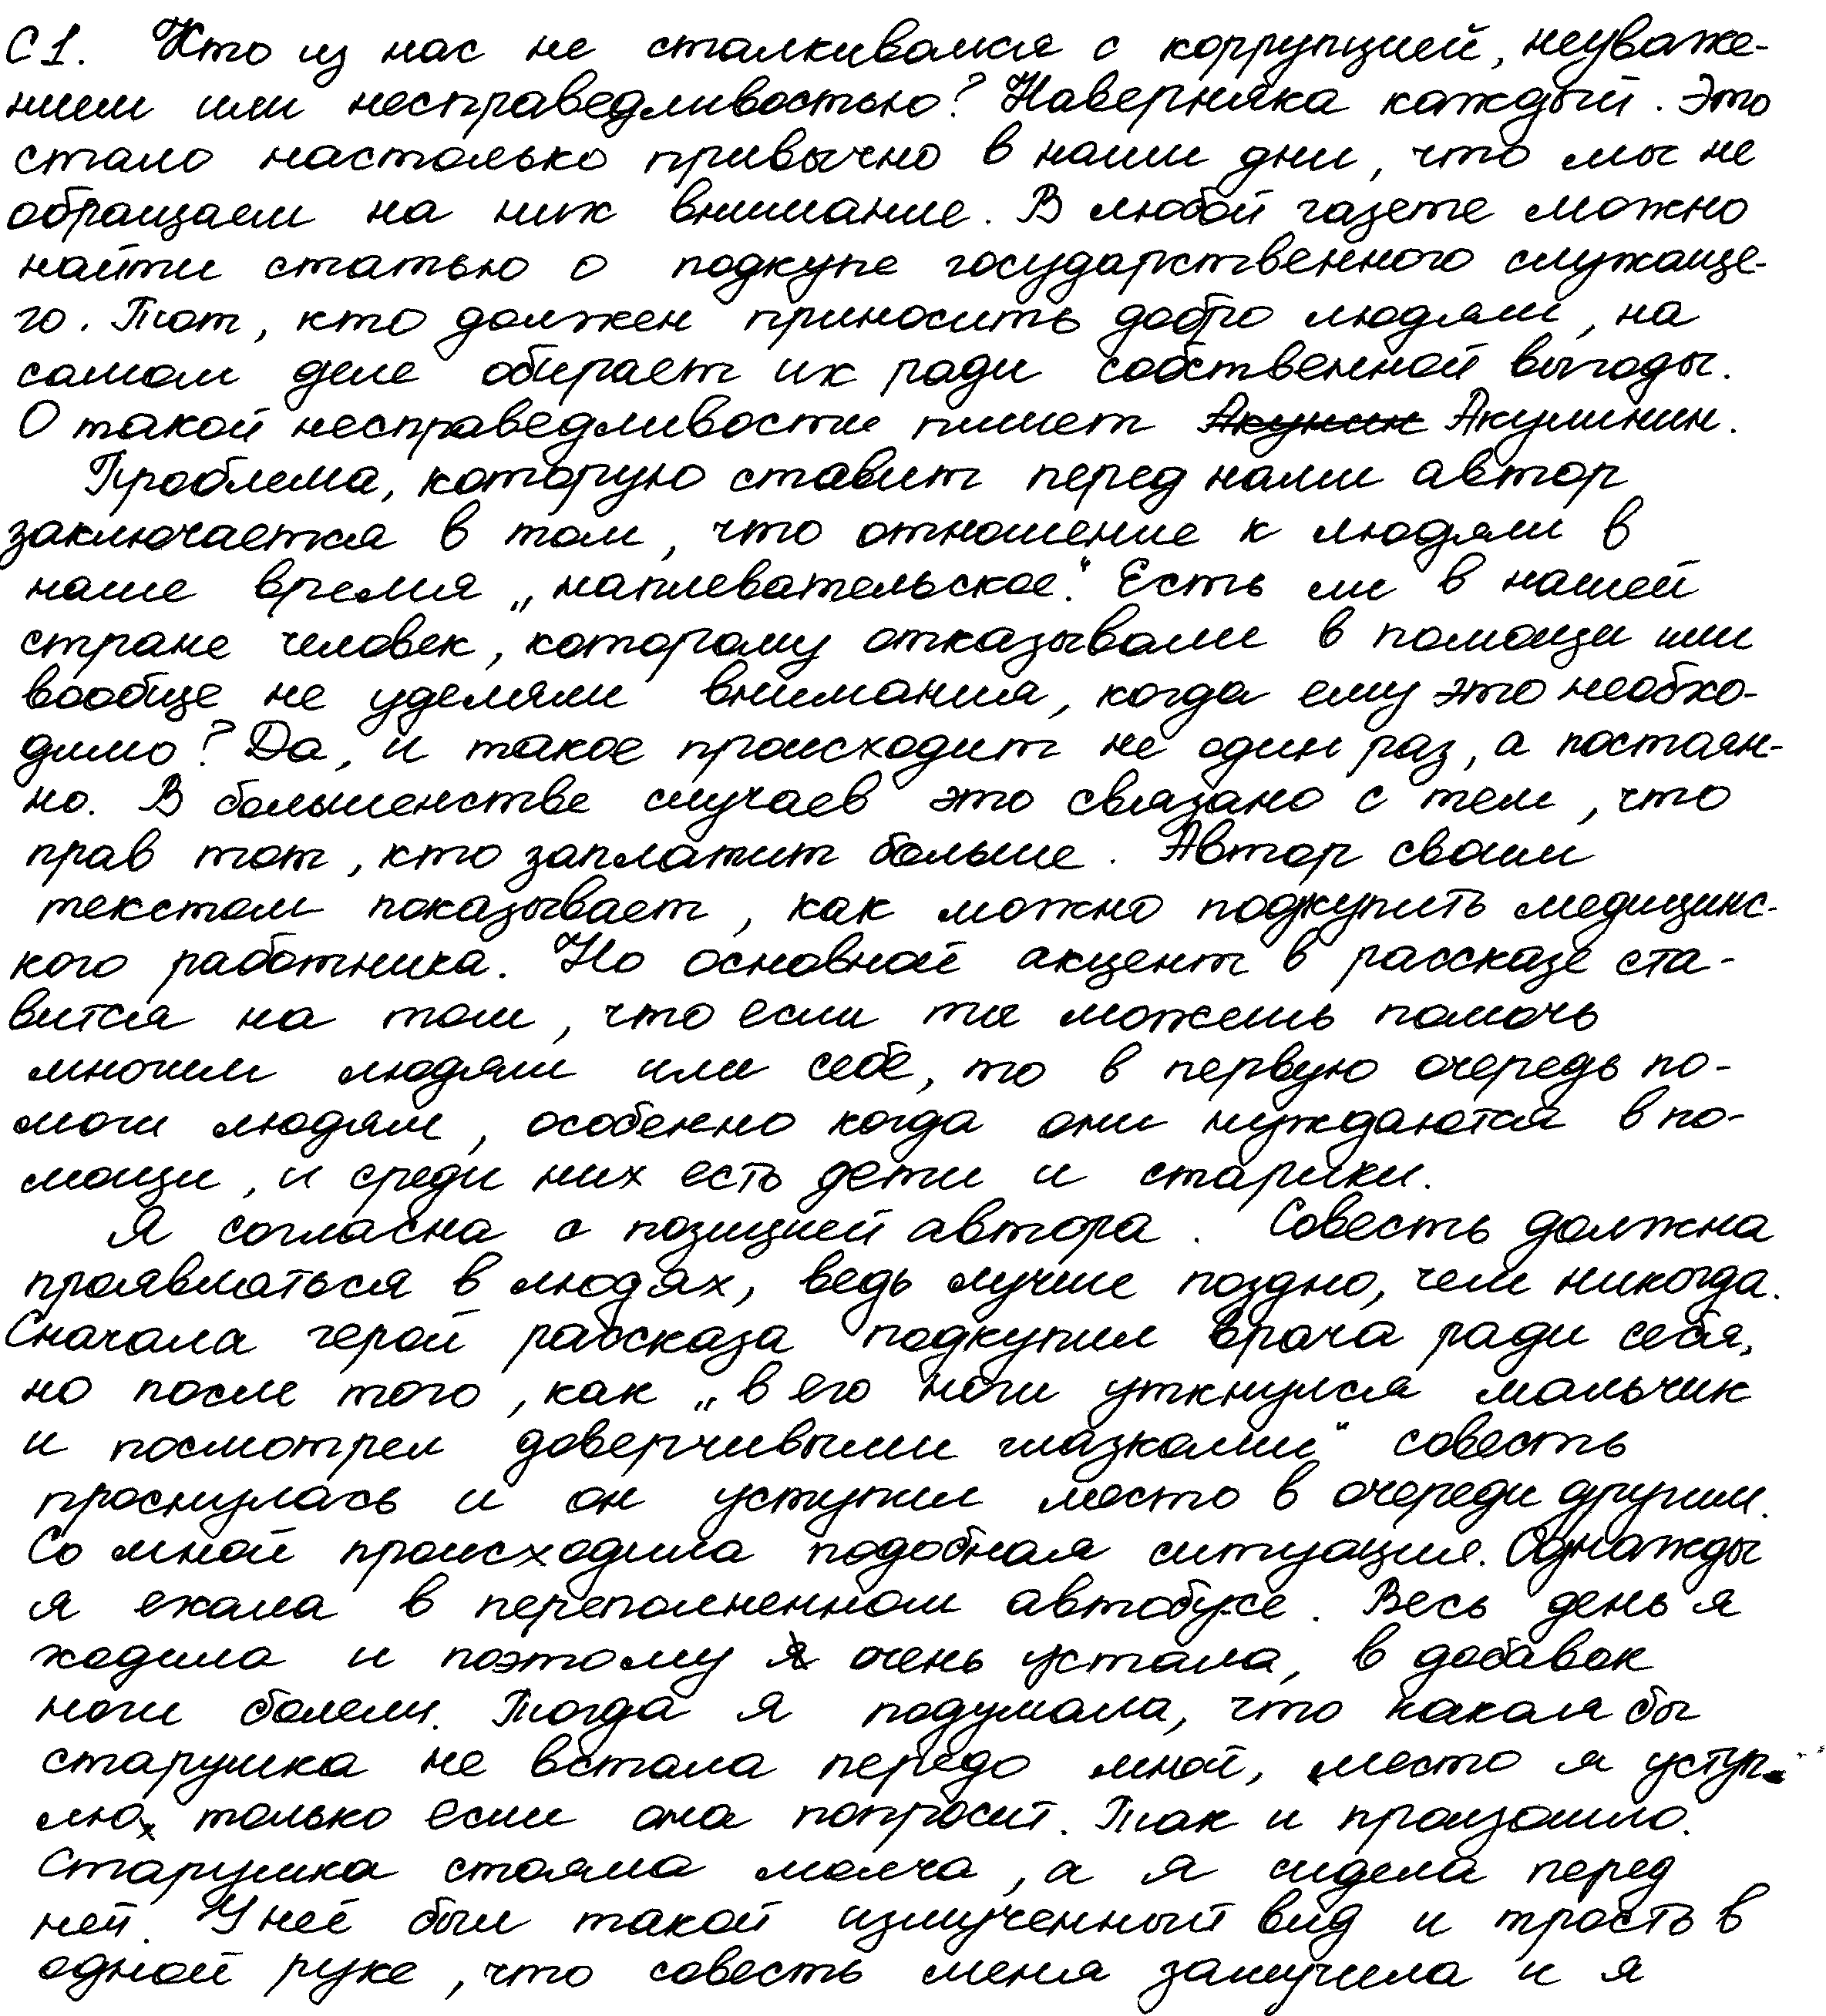 С1. Кто из нас не сталкивался с коррупцией, неуваже-
нием или несправедливостью? Наверняка каждый. Это
стало настолько привычно в наши дни, что мы не
обращаем на них внимание. В любой газете можно
найти статью о подкупе государственного служаще-
го. Тот, кто должен приносить добро людям, на
самом деле обирает их ради собственной выгоды.
О такой несправедливости пишет Акунин Акулинин.
Проблема, которую ставит перед нами автор
заключается в том, что отношение к людям в
наше время „наплевательское“. Есть ли в нашей
стране человек, которому отказывали в помощи или
вообще не уделяли внимания, когда ему это необхо-
димо? Да, и такое происходит не один раз, а постоян-
но. В большенстве случаев это связано с тем, что
прав тот, кто заплатит больше. Автор своим
текстом показывает, как можно подкупить медицинс-
кого работника. Но основной акцент в рассказе ста-
вится на том, что если ты можешь помочь
многим людям или себе, то в первую очередь по-
моги людям, особенно когда они нуждаются в по-
мощи, и среди них есть дети и старики.
Я согласна с позицией автора. Совесть должна
проявляться в людях, ведь лучше поздно, чем никогда.
Сначала герой рассказа подкупил врача ради себя,
но после того, как „в его ноги уткнулся мальчик
и посмотрел доверчивыми глазками“ совесть
проснулась и он уступил место в очереди другим.
Со мной происходила подобная ситуация. Однажды
я ехала в переполненном автобусе. Весь день я
ходила и поэтому я очень устала, в добавок
ноги болели. Тогда я подумала, что какая бы
старушка не встала передо мной, место я уступ-
лю, только если она попросит. Так и произошло.
Старушка стояла молча, а я сидела перед
ней. У неё был такой измученный вид и трость в
одной руке, что совесть меня замучила и я